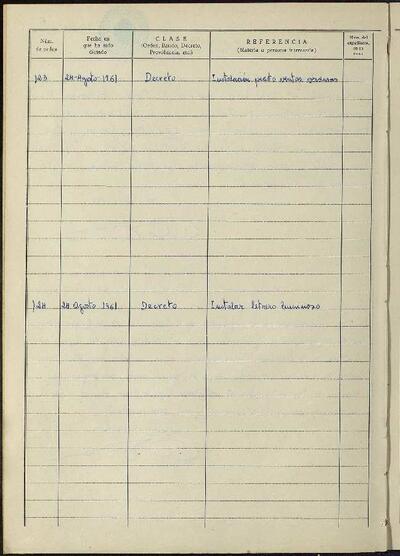 Núm. de orden
Fecha en que ha sido dictado
CLASE
(Orden, Bando, Decreto, Providencia, etc.)
REFERENCIA
(Materia o persona
Núm. del expediente,
123 24-Agosto-1961 Decreto Instalación
124 24 Agosto 1961 Decreto Instalar letrero luminoso